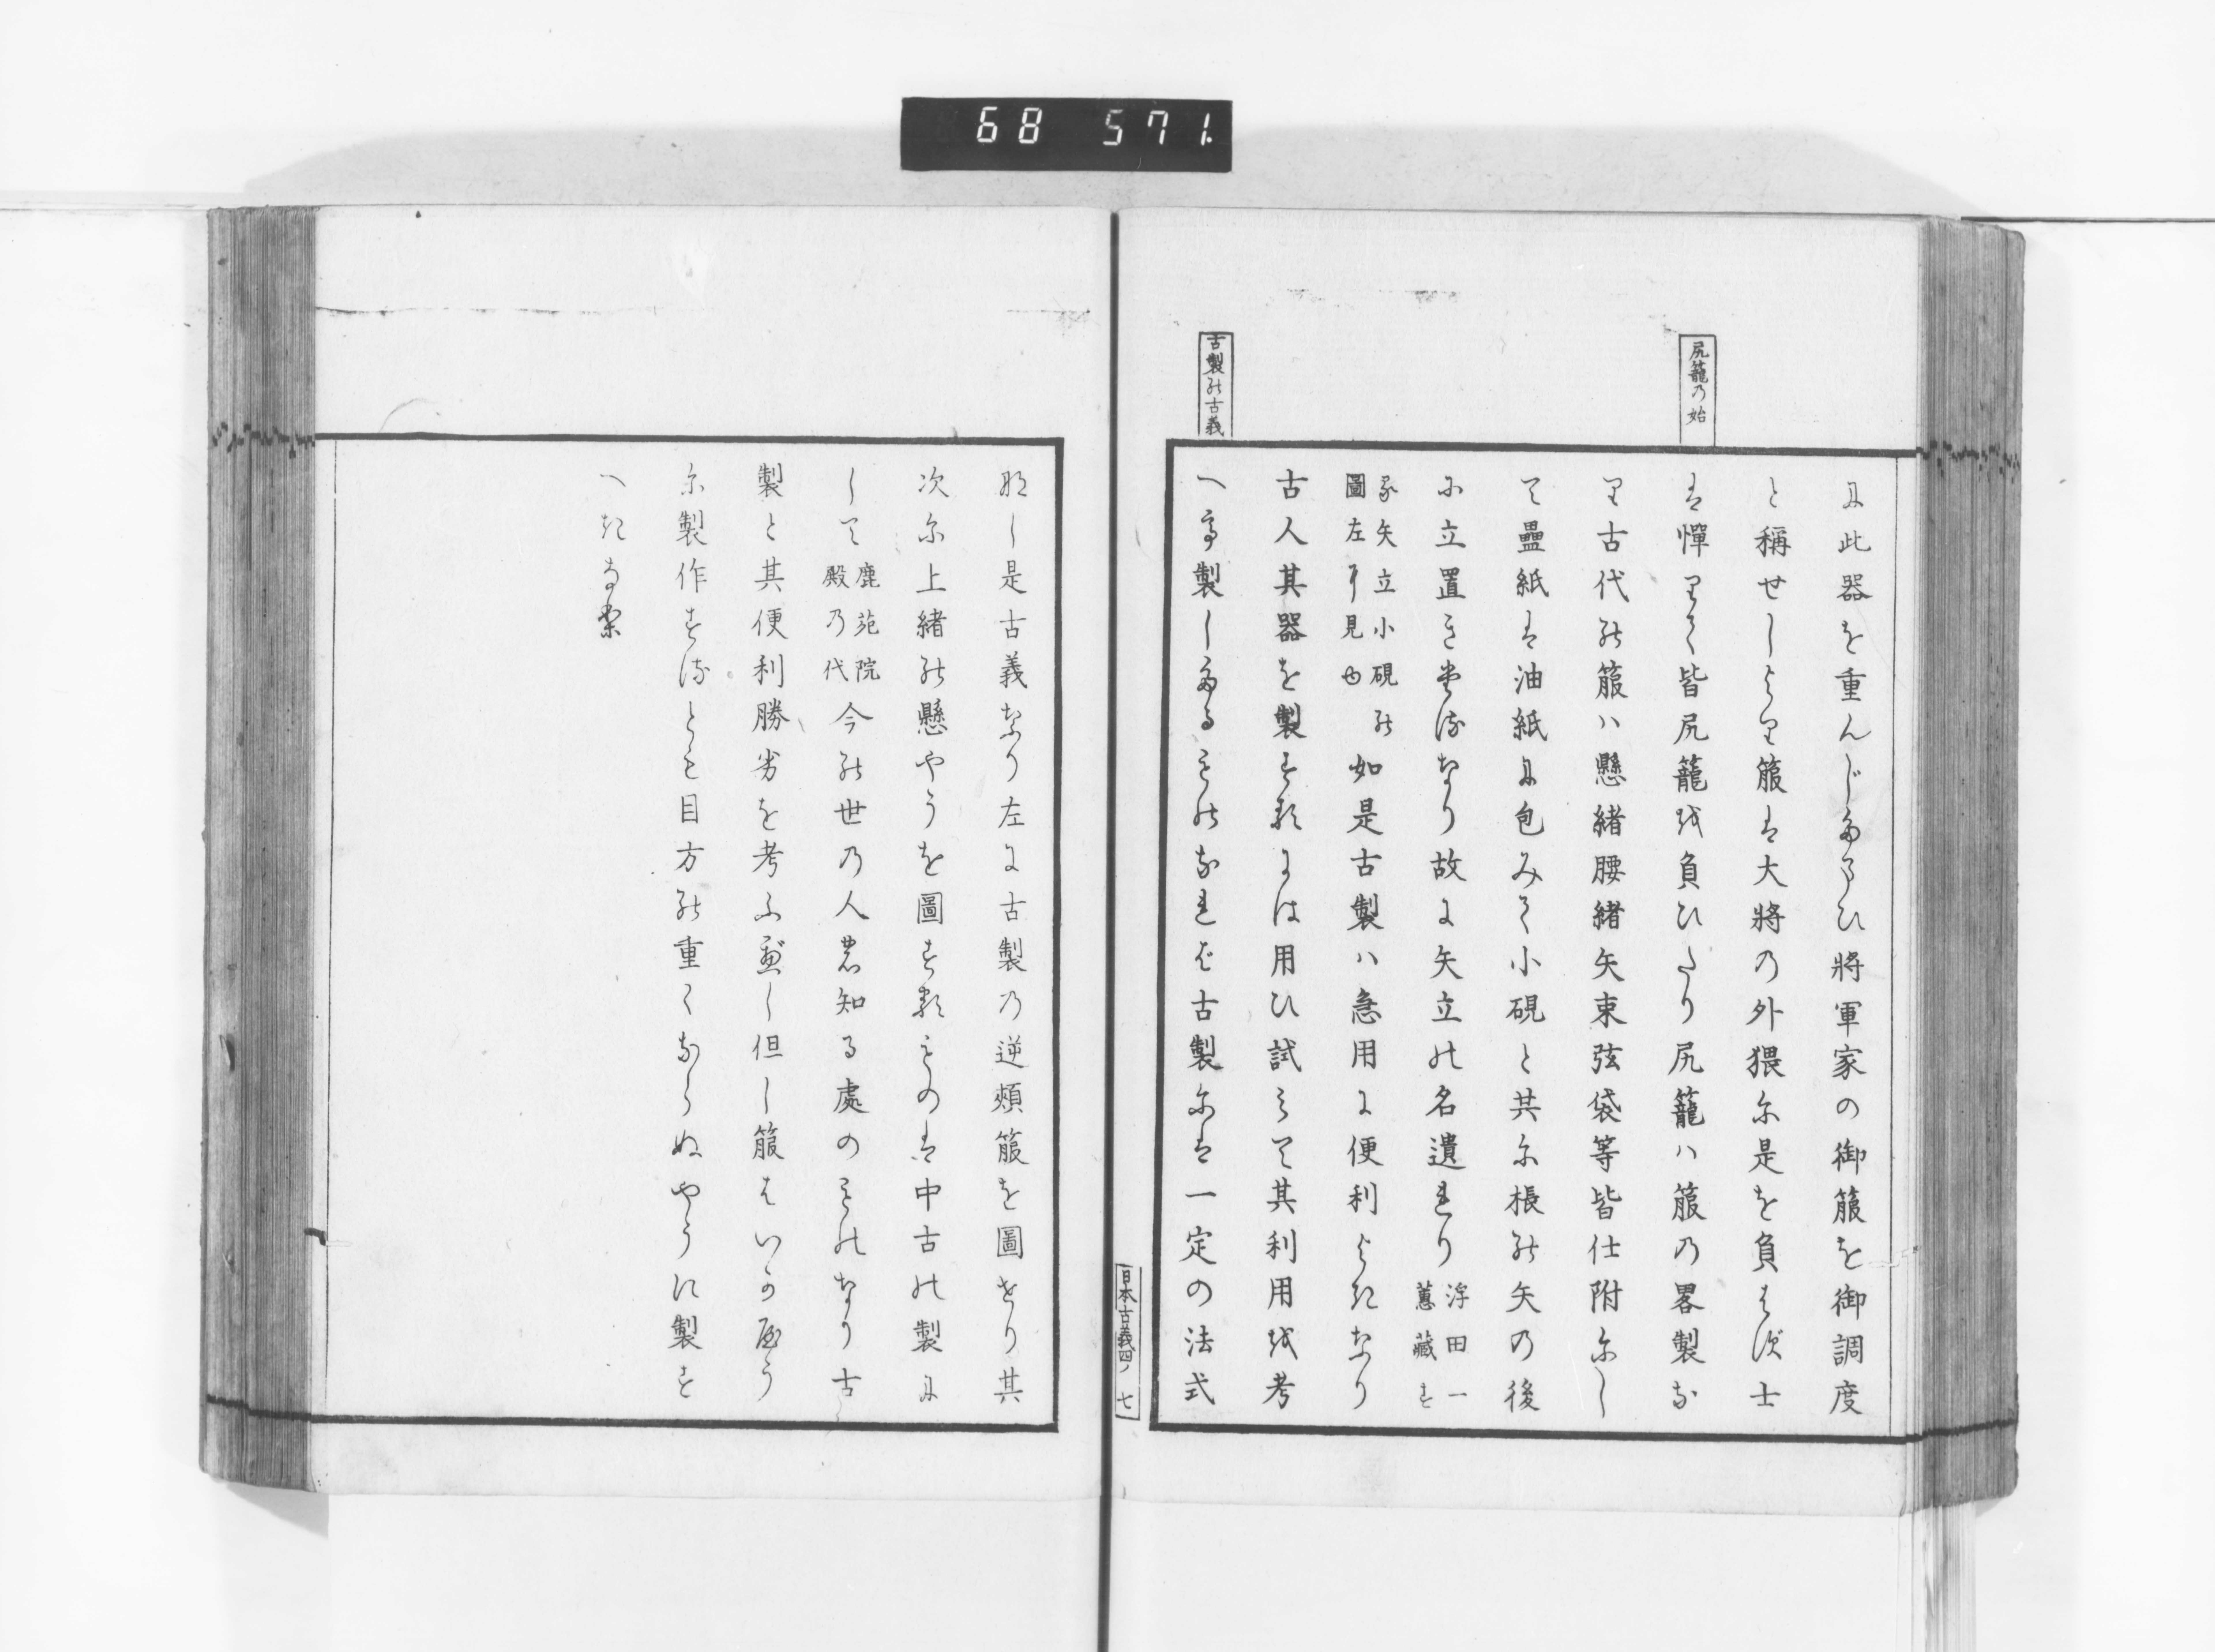 68 571
尻籠乃始
古製の古義
に此器を重んじ給ひ將軍家の御箙を御調度
と稱せしより箙は大將の外猥に是を負はず士
は憚りて皆尻籠を負ひたり尻籠ハ箙の畧製な
り古代の箙ハ懸緒腰緒矢束弦袋等皆仕附にし
て疊紙は油紙に包みて小硯と共に帳の矢の後
に立置き堂るなり故に矢立の名遺れり浮田一
蕙藏す
る矢立小硯の
圖左に見ゆ
如是古製ハ急用に便利よきなり
古人其器を製するには用ひ試みて其利用を考
へ て製したるものなれば古製には一定の法式
那し是古義なり左に古製乃逆頰箙を圖せり其
次に上緒の懸やうを圖するものは中古の製に
して
鹿苑院
殿乃代
今の世乃人若知る處のものなり古
製と其便利勝劣を考ふ遍し但し箙はいか屋う
に製作するとも目方の重くならぬやうに製す
へきなり
日本古義四ノ 七